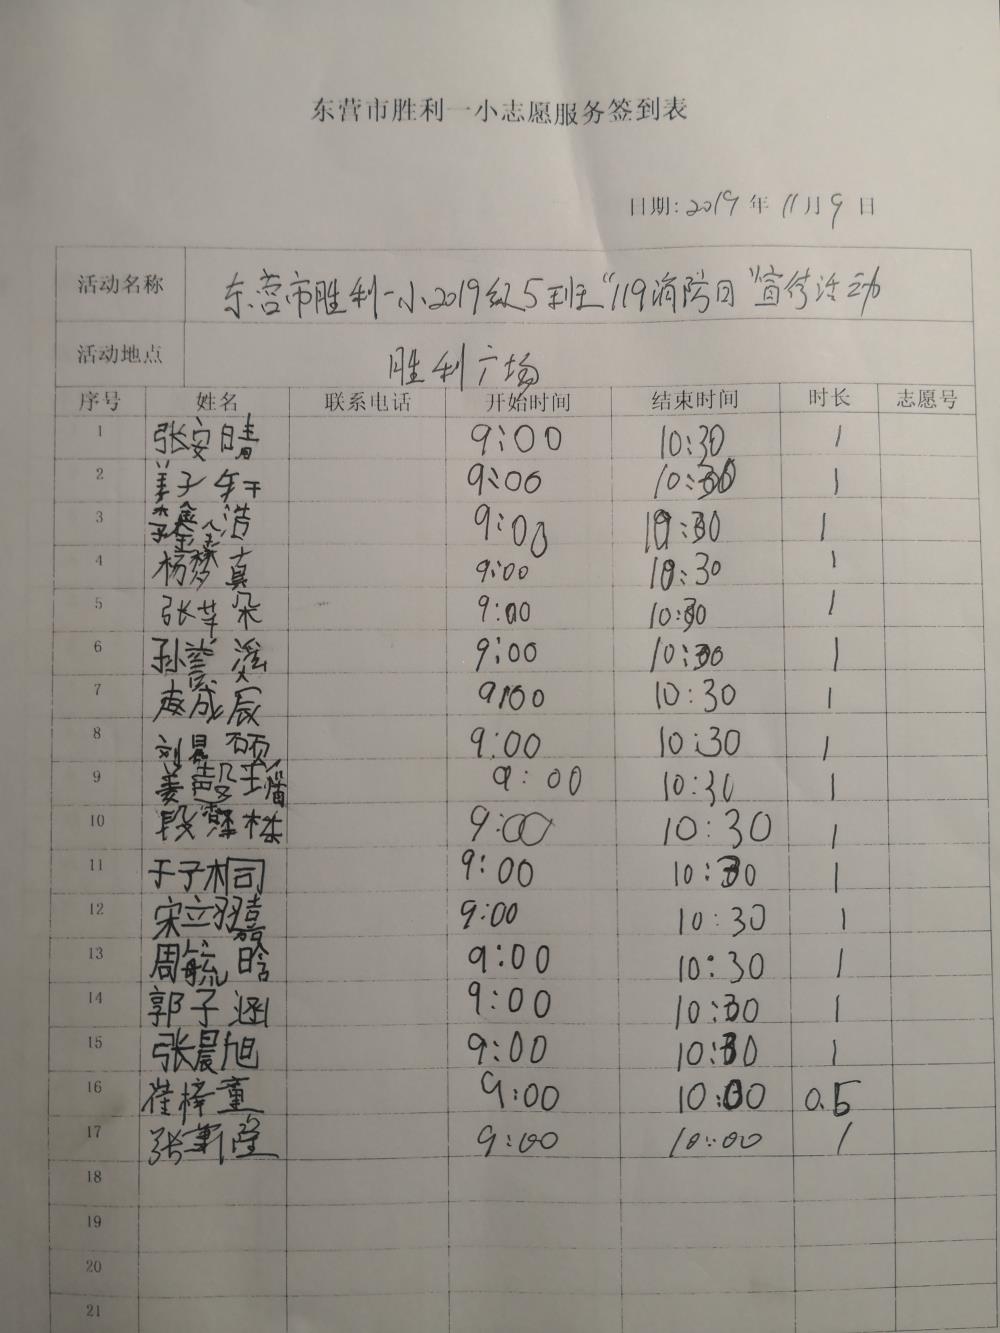 东营市胜利一小志愿服务签到表
日期: 2019 年 11 月 9 日
活动名称 东营市胜利一小2019级5班“119消防日”宣传活动
活动地点 胜利广场
序号 姓名 联系电话 开始时间 结束时间 时长 志愿号
1 张安晴 9:00 10:30 1
2 姜子轩 9:00 10:30 1
3 浩 9:00 10:30 1
4 杨梦真 9:00 10:30 1
5 张芊朵 9:00 10:30 1
6 孙 9:00 10:30 1
7 成辰 9:00 10:30 1
8 刘昱硕 9:00 10:30 1
9 姜 9:00 10:30 1
10 段霖 9:00 10:30 1
11 于子桐 9:00 10:30 1
12 宋立 9:00 10:30 1
13 周毓晗 9:00 10:30 1
14 郭子涵 9:00 10:30 1
15 张晨旭 9:00 10:30 1
16 崔梓童 9:00 10:00 0.5
17 张 9:00 10:00 1
18
19
20
21